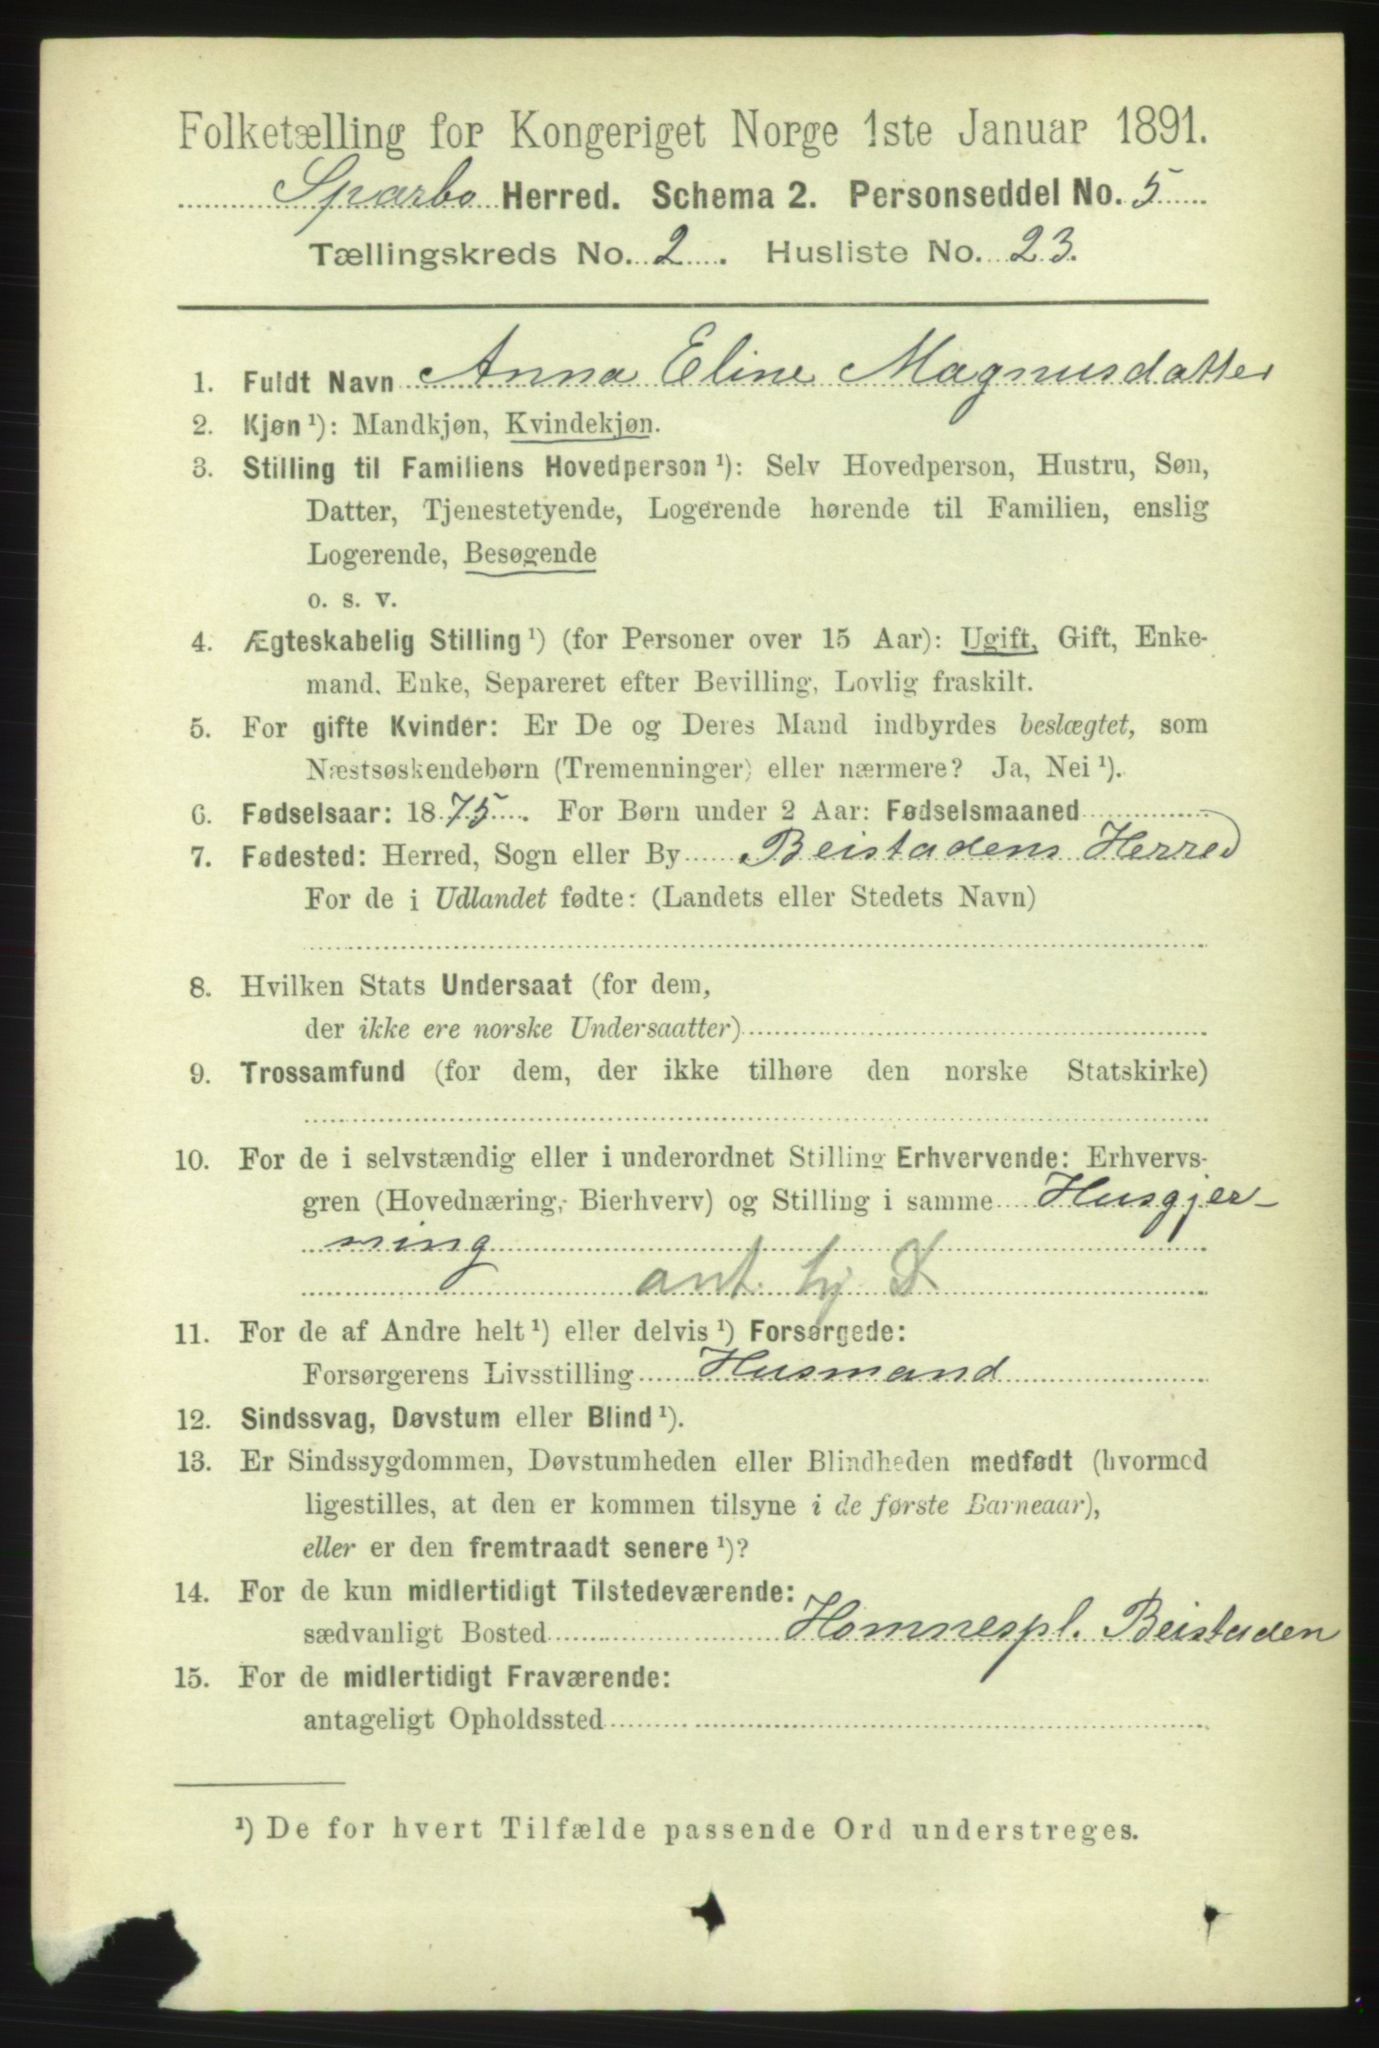 Folketælling for Kongeriget Norge 1ste Januar 1891.
Sparbo Herred. Schema 2. Personseddel No. 5
Tællingskreds No. 2. Husliste No. 23.
1. Fuldt Navn Anna Eline Magnusdatter
2. Kjøn¹): Mandkjøn, Kvindekjøn.
3. Stilling til Familiens Hovedperson¹): Selv Hovedperson, Hustru, Søn,
Datter, Tjenestetyende, Logerende hørende til Familien, enslig
Logerende, Besøgende
o. s. v.
4. Ægteskabelig Stilling¹) (for Personer over 15 Aar): Ugift, Gift, Enke-
mand, Enke, Separeret efter Bevilling, Lovlig fraskilt.
5. For gifte Kvinder: Er De og Deres Mand indbyrdes beslægtet, som
Næstsøskendebørn (Tremenninger) eller nærmere? Ja, Nei¹).
6. Fødselsaar: 1875. For Børn under 2 Aar: Fødselsmaaned
7. Fødested: Herred, Sogn eller By Beistadens Herred
For de i Udlandet fødte: (Landets eller Stedets Navn)
8. Hvilken Stats Undersaat (for dem,
der ikke ere norske Undersaatter)
9. Trossamfund (for dem, der ikke tilhøre den norske Statskirke)
10. For de i selvstændig eller i underordnet Stilling Erhvervende: Erhvervs-
gren (Hovednæring, Bierhverv) og Stilling i samme Husgjer-
ning
ant. hj D
11. For de af Andre helt¹) eller delvis¹) Forsørgede:
Forsørgerens Livsstilling Husmand
12. Sindssvag, Døvstum eller Blind¹).
13. Er Sindssygdommen, Døvstumheden eller Blindheden medfødt (hvormed
ligestilles, at den er kommen tilsyne i de første Barneaar),
eller er den fremtraadt senere¹)?
14. For de kun midlertidigt Tilstedeværende:
sædvanligt Bosted Homnespl. Beistaden
15. For de midlertidigt Fraværende:
antageligt Opholdssted
¹) De for hvert Tilfælde passende Ord understreges.